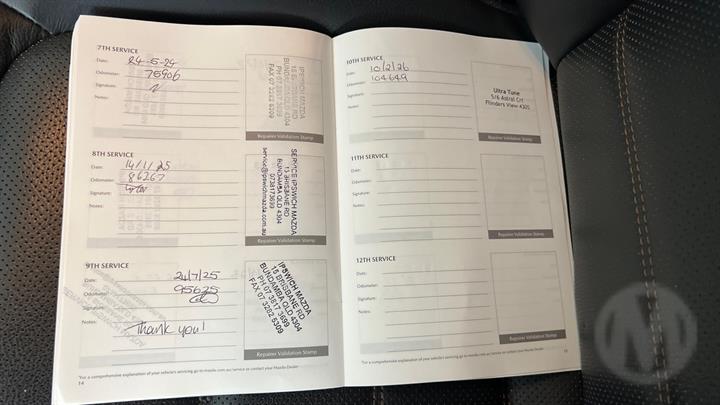 7TH SERVICE
Date: 24-5-24
Odometer: 75906
Signature:
Notes:
IPSWICH MAZDA
15 BRISBANE RD
BUNDAMBA QLD 4304
PH 07 3817 3699
FAX 07 3282 5309
Repairer Validation Stamp
8TH SERVICE
Date: 14/1/25
Odometer: 86267
Signature:
Notes:
SERVICE IPSWICH MAZDA
15 BRISBANE RD
BUNDAMBA QLD 4304
0738173699
service@ipswichmazda.com.au
Repairer Validation Stamp
9TH SERVICE
Date: 24/7/25
Odometer: 95625
Signature:
Notes: Thank you!
IPSWICH MAZDA
15 BRISBANE RD
BUNDAMBA QLD 4304
PH 07 3817 3699
FAX 07 3282 5309
Repairer Validation Stamp
*For a comprehensive explanation of your vehicles servicing go to mazda.com.au/service or contact your Mazda Dealer
14
10TH SERVICE
Date: 10/2/26
Odometer: 104649
Signature:
Notes:
Ultra Tune
5/6 Astral Crt
Flinders View 4305
Repairer Validation Stamp
11TH SERVICE
Date:
Odometer:
Signature:
Notes:
Repairer Validation Stamp
12TH SERVICE
Date:
Odometer:
Signature:
Notes:
Repairer Validation Stamp
*For a comprehensive explanation of your vehicles servicing go to mazda.com.au/service or contact your Mazda Dealer
15
M